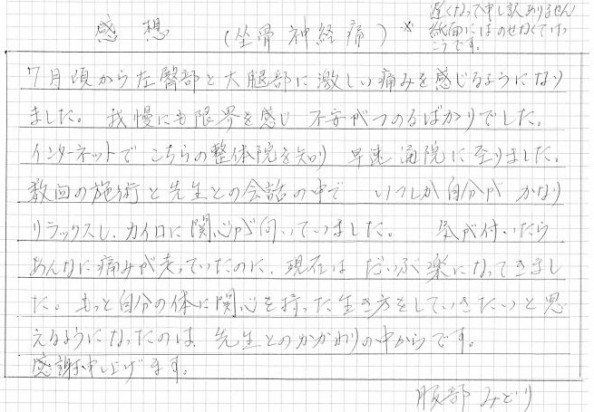 感想　(坐骨神経痛)
※ 遅くなって申し訳ありません
紙面にはのせなくてけっこうです。
7月頃から左臀部と大腿部に激しい痛みを感じるようになり
ました。我慢にも限界を感じ 不安がつのるばかりでした。
インターネットで こちらの整体院を知り 早速 通院に至りました。
数回の施術と先生との会話の中で いつしか自分が かなり
リラックスし、カイロに関心が向いていました。 気が付いたら
あんなに痛みが走っていたのに、現在は だいぶ楽になってきまし
た。もっと自分の体に関心を持った生き方をしていきたいと思
えるようになったのは、先生とのかかわりの中からです。
感謝申し上げます。
服部 みどり